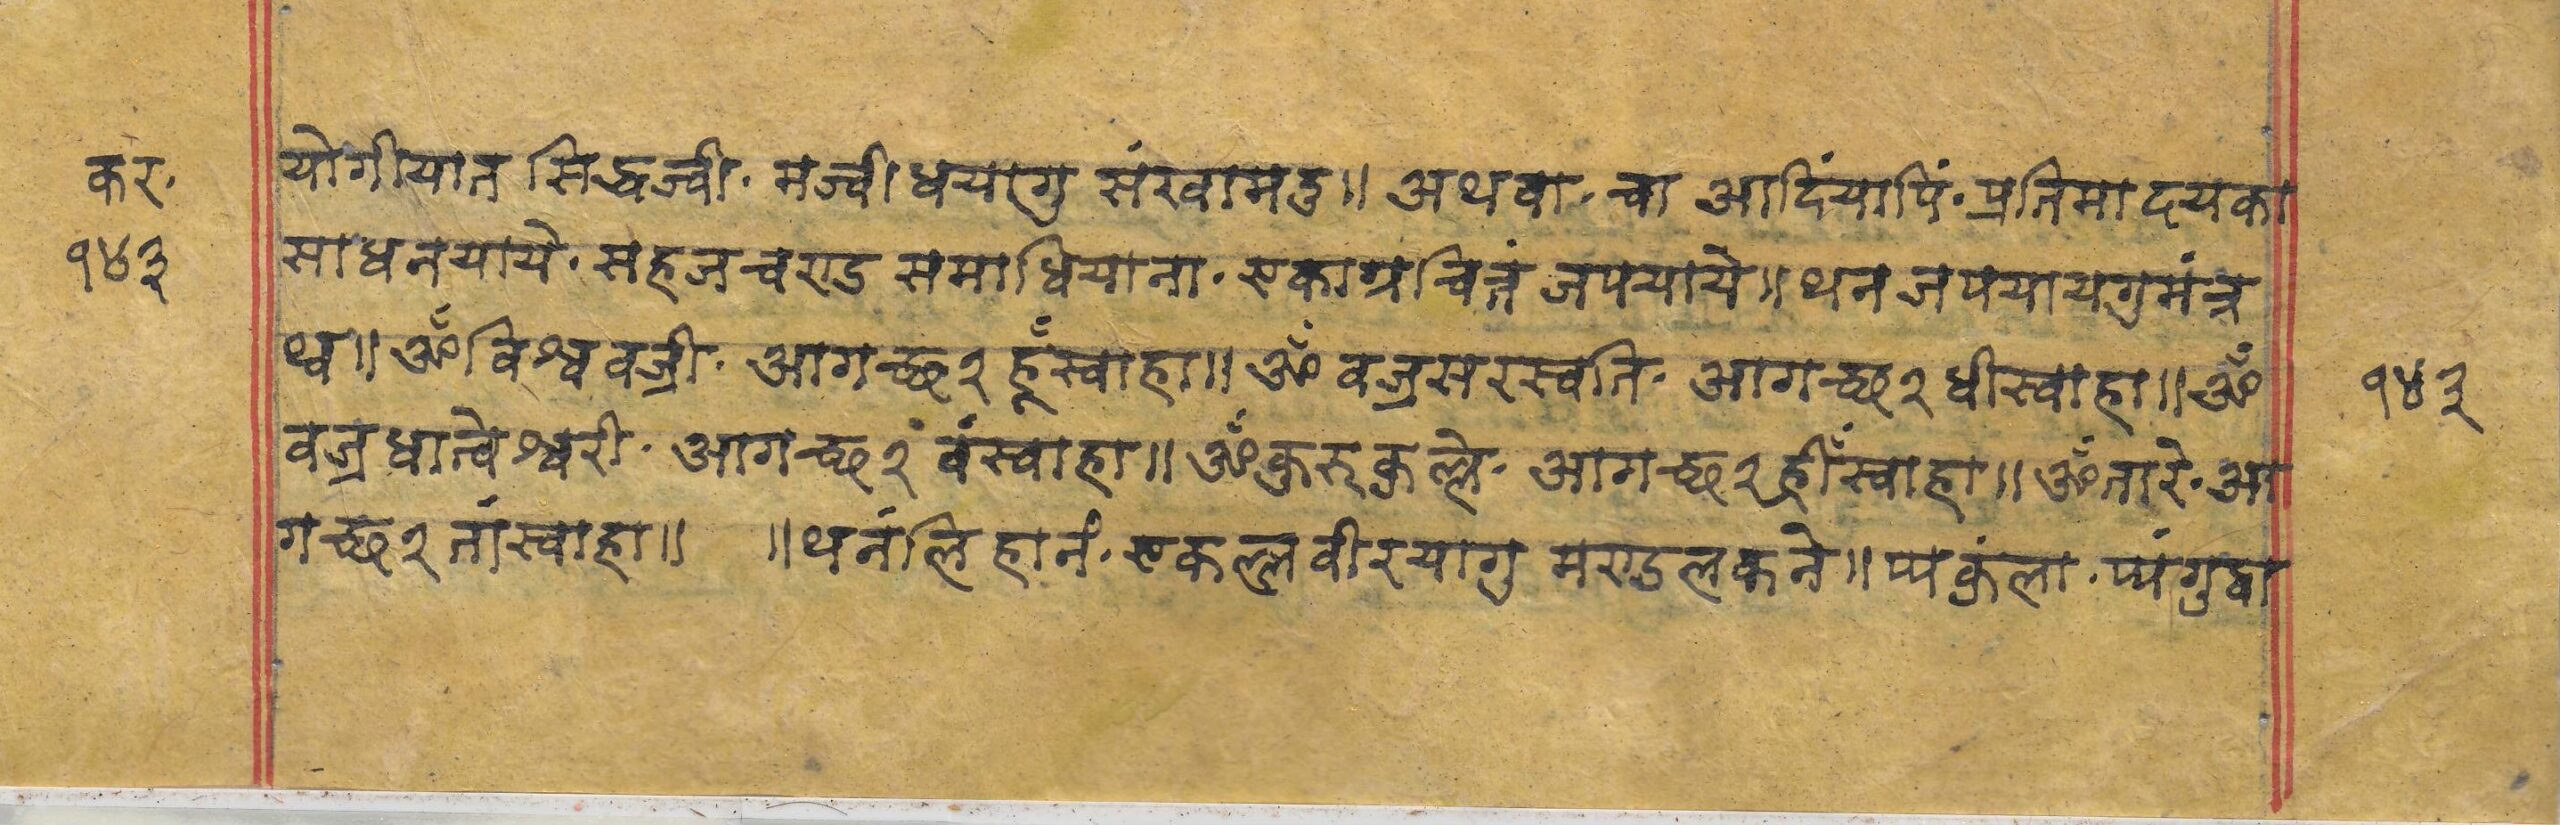 कर.
१४३
योगीयात सिद्धज्वी. मज्वीधयागु संखामदु॥ अथवा. चा आदिंयापिं. प्रतिमा दयका
साधनयाये. सहजचण्ड समाधियाना. एकाग्रचित्तं जपयाये॥ थन जपयायगुमंत्र
थ्व॥ ॐ विश्ववज्री. आगच्छ२ हूँ स्वाहा॥ ॐ वज्रसरस्वति. आगच्छ२ धीस्वाहा॥ ॐ
वज्रधात्वेश्वरी. आगच्छ२ं वंस्वाहा॥ ॐ कुरुकुल्ले. आगच्छ२ ह्रीँस्वाहा॥ ॐ तारे. आ
गच्छ२ तांस्वाहा॥ ॥ थनंलि हानं. एकल्लवीरयागु मण्डलकने॥ प्यकुंला. प्यंगुद्वा
१४३